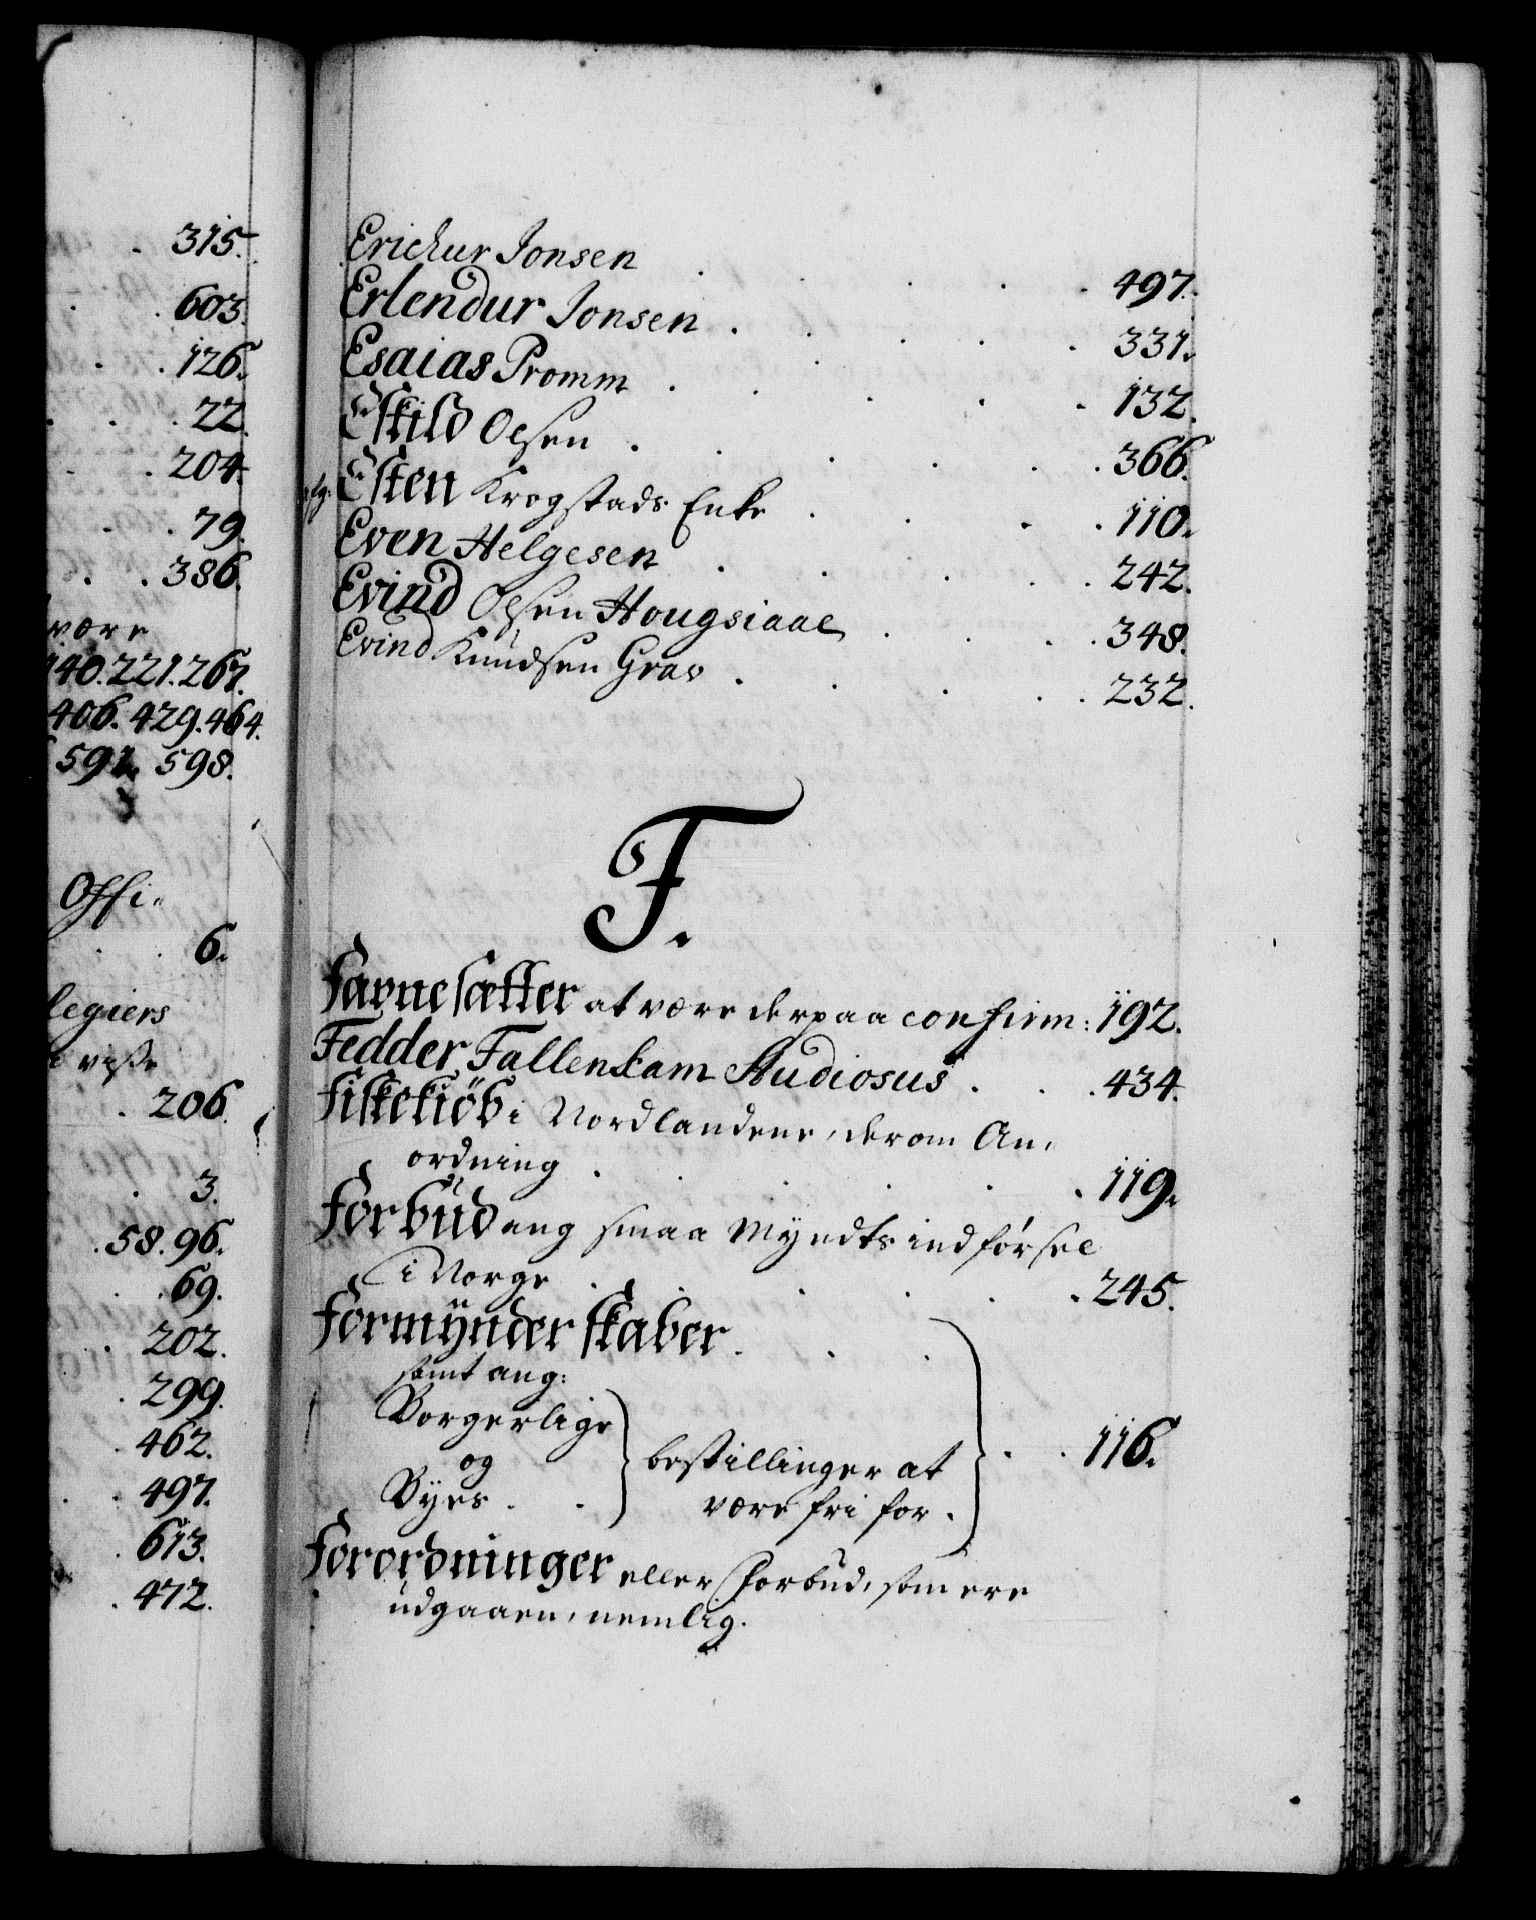 315.
603.
126.
22.
204.
79.
386.
være
140. 221. 267.
406. 429. 464.
591. 598.
Offi-
6.
legiers
visse
206.
3.
58. 96.
69.
202.
299.
462.
497.
613.
472.
Erichur Jonsen . . . . 497.
Erlendur Jonsen . . . . 331.
Esaias Promm . . . . 132.
Eskild Olsen . . . . 366.
Esten Krogstads Enke . . . . 110.
Even Helgesen . . . . 242.
Evind Olsen Hougsiaal . . . . 348.
Evind Knudsen Grav . . . . 232.
F.
Favnesætter at være derpaa confirm: 192.
Fedder Fallenkam Studiosus . . . 434.
Fiskekiöb i Nordlandene, derom An-
ordning . . . . 119.
Forbud ang smaa Myndts indførsel
i Norge . . . . 245.
Formynderskaber . . .
samt ang:
Borgerlige
og
Byes . .
bestillinger at
være fri for .
. . 116.
Forordninger eller Forbud, som ere
udgaaen, nemlig.